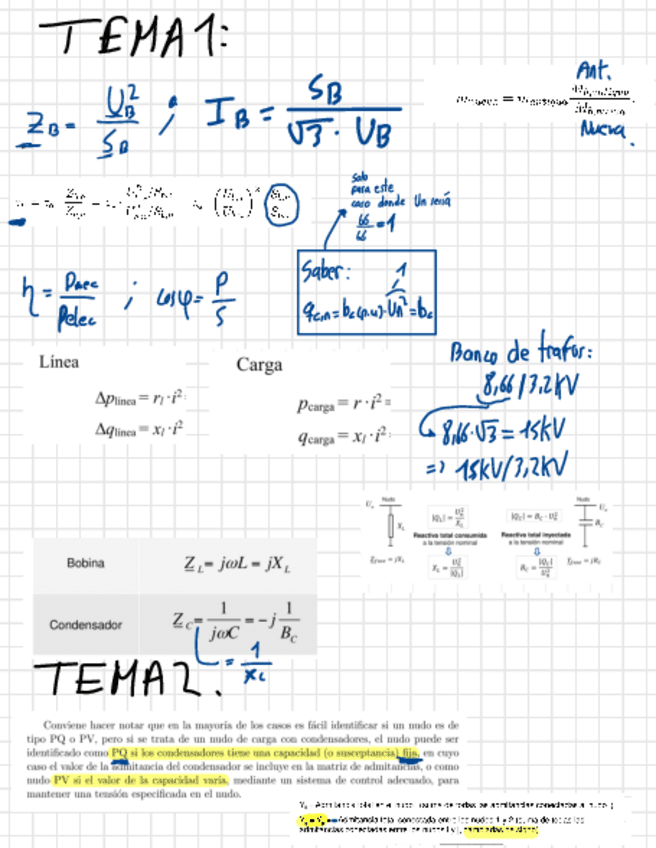 TEMA 1:
Z_B = U_B² / S_B ; I_B = S_B / (√3 · U_B)
Ant.
Nueva.
solo
para este
caso donde Un será
66/66 = 1
η = Pmec / Pelec ; cosφ = P / S
Saber: 1
q_c,n = b_c(p.u) · Un² = b_c
Línea
Δp línea = r_l · i²
Δq línea = x_l · i²
Carga
p carga = r · i² =
q carga = x_l · i² =
Banco de trafos:
8,66 / 3,2 kV
8,66 · √3 = 15 kV
=> 15 kV / 3,2 kV
Nudo
Reactiva total consumida
a la tensión nominal
Reactiva total inyectada
a la tensión nominal
Nudo
Bobina Z_L = jωL = jX_L
Condensador Z_C = 1 / jωC = -j 1 / B_C
TEMA 2.
Conviene hacer notar que en la mayoría de los casos es fácil identificar si un nudo es de
tipo PQ o PV, pero si se trata de un nudo de carga con condensadores, el nudo puede ser
identificado como PQ si los condensadores tiene una capacidad (o susceptancia) fija, en cuyo
caso el valor de la admitancia del condensador se incluye en la matriz de admitancias, o como
nudo PV si el valor de la capacidad varía, mediante un sistema de control adecuado, para
mantener una tensión especificada en el nudo.